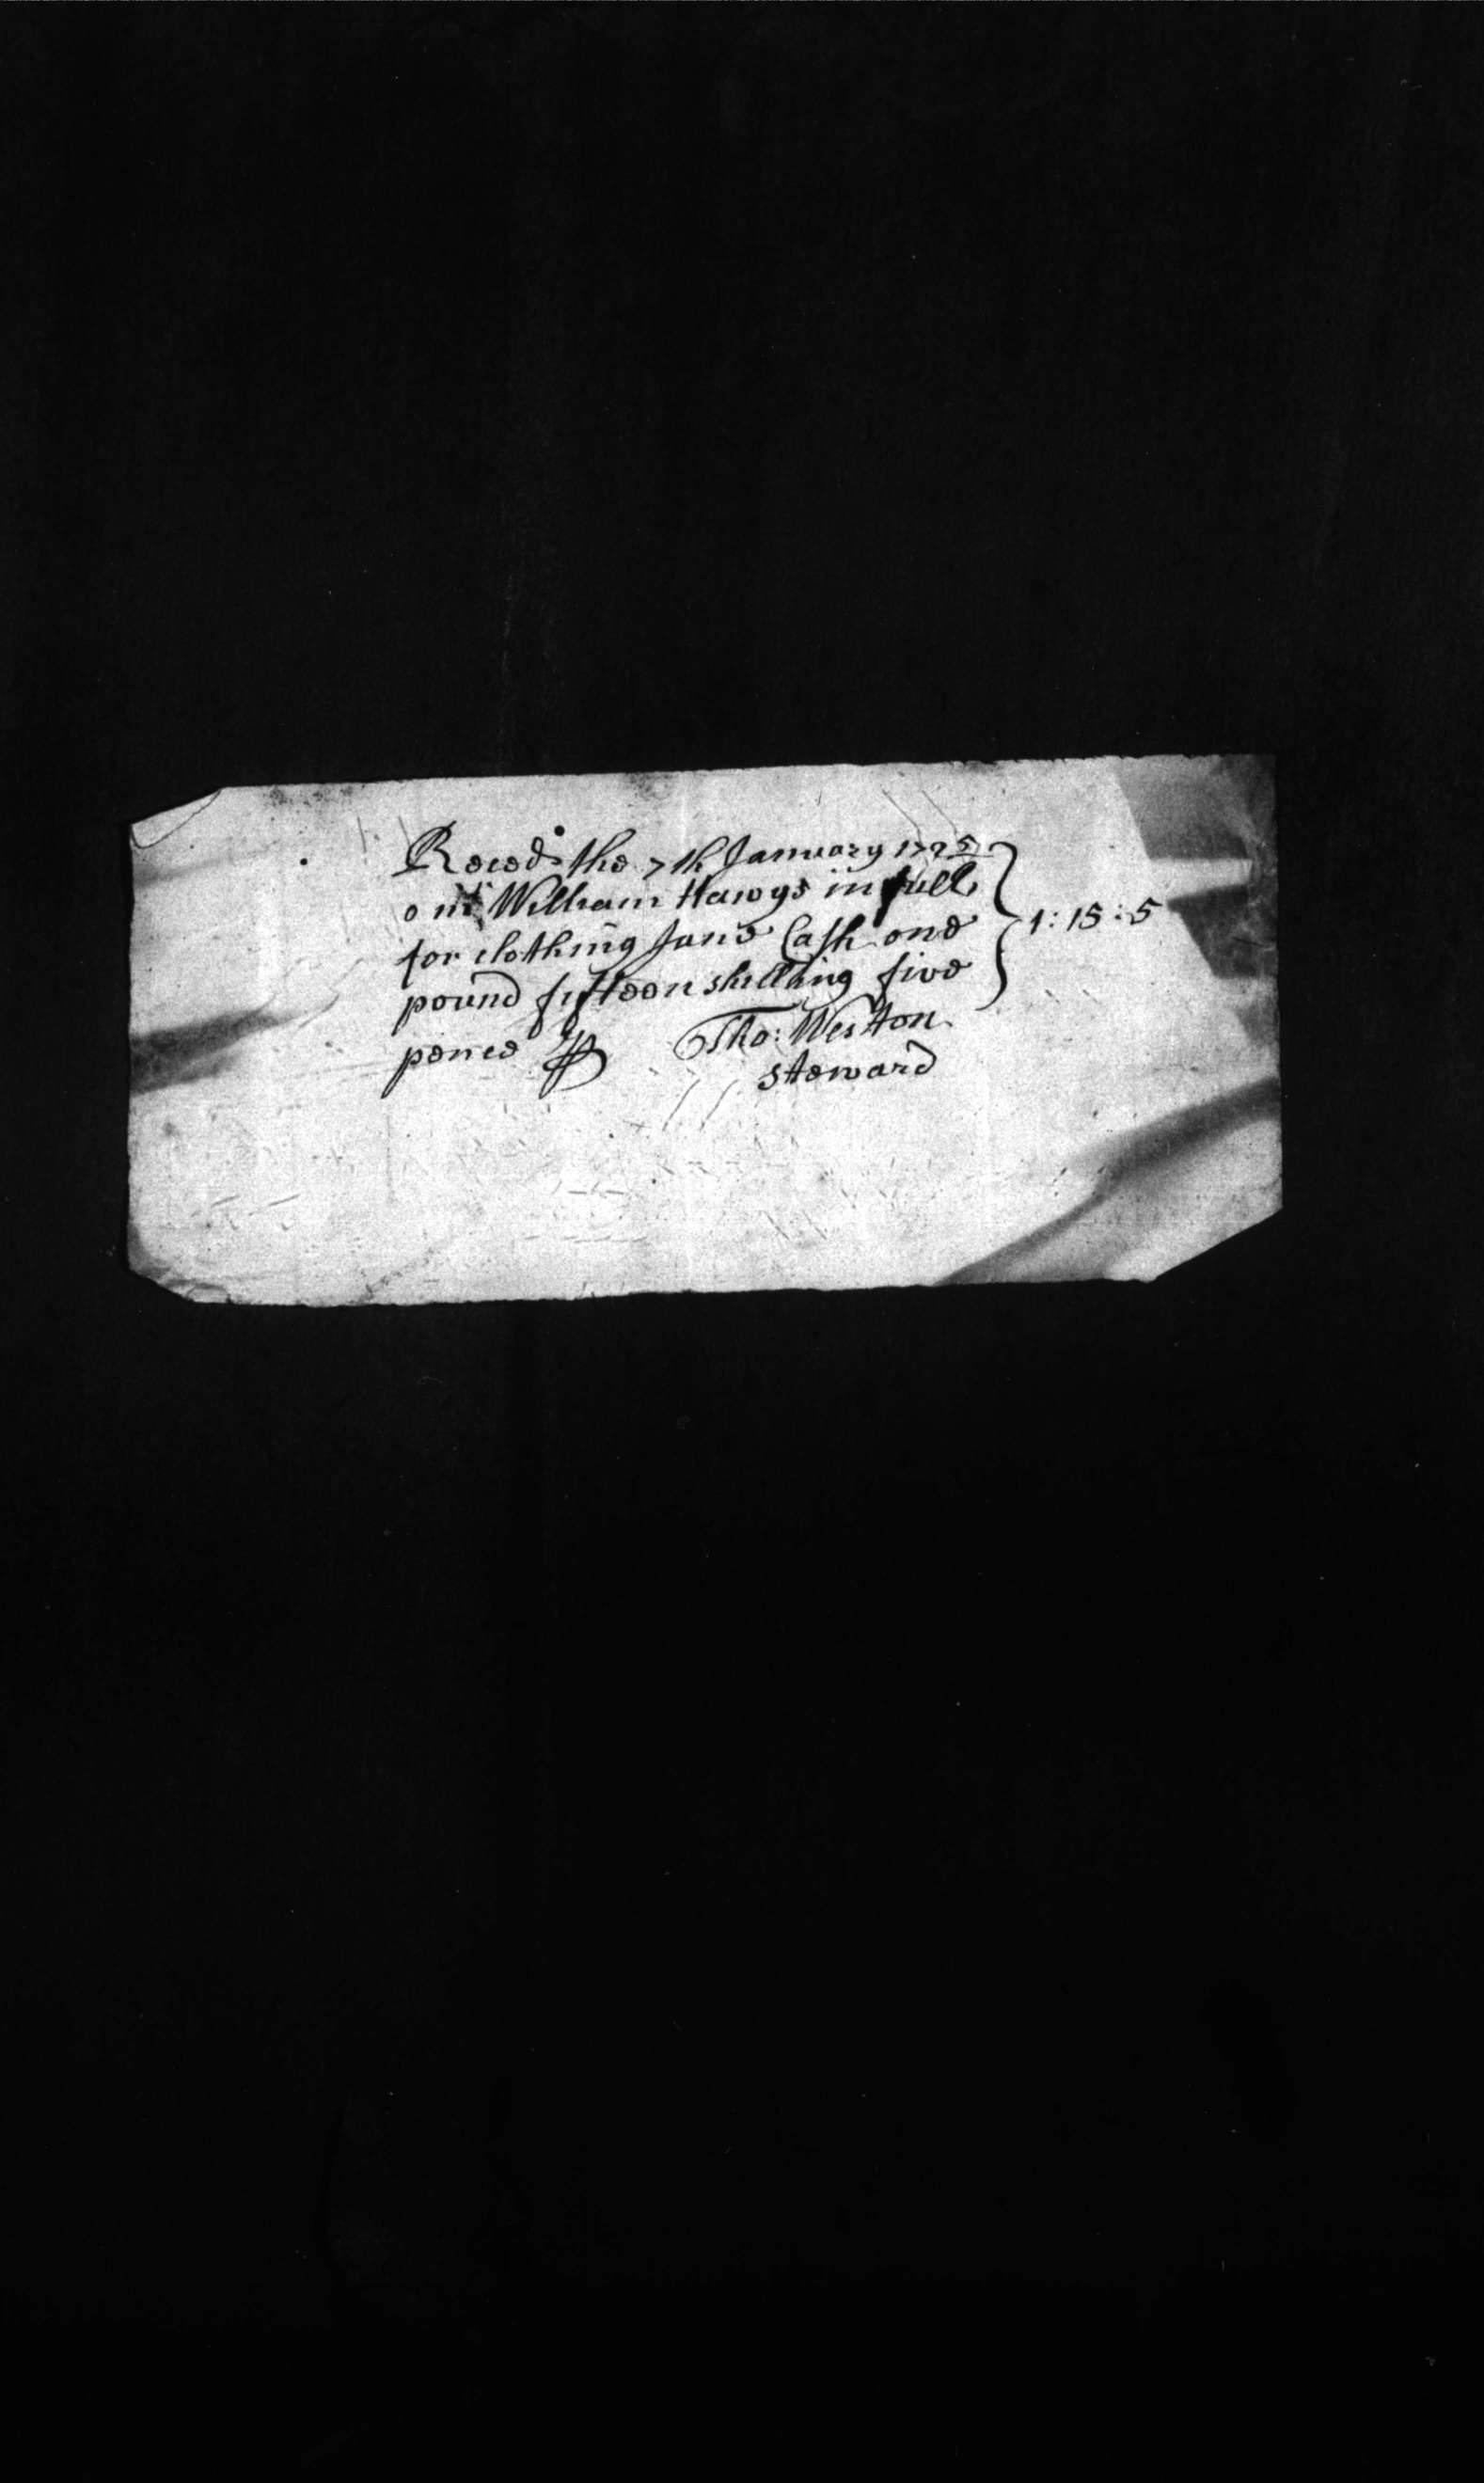 Reced the 7th January 1725
o mr William Hawys in full
for clothing Jane Cash one
pound fifteen shilling five
pence 1: 15: 5
Tho: Weston
steward